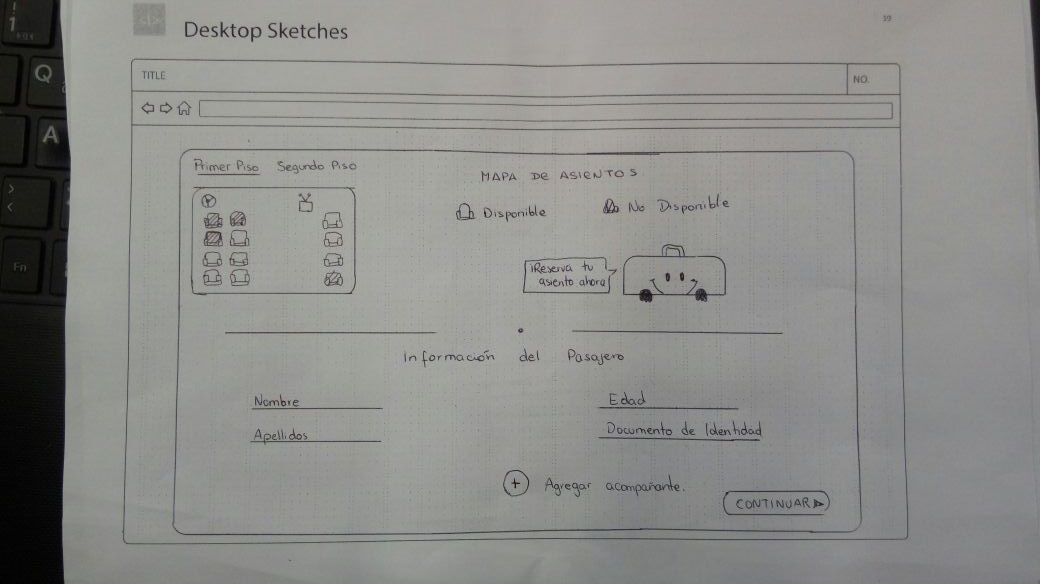 </>
Desktop Sketches
39
TITLE
NO.
Primer Piso Segundo Piso
MAPA DE ASIENTOS
Disponible
No Disponible
¡Reserva tu
asiento ahora
Información del Pasajero
Nombre
Edad
Apellidos
Documento de Identidad
+ Agregar acompañante.
CONTINUAR
1
Q
A
>
<
Fn